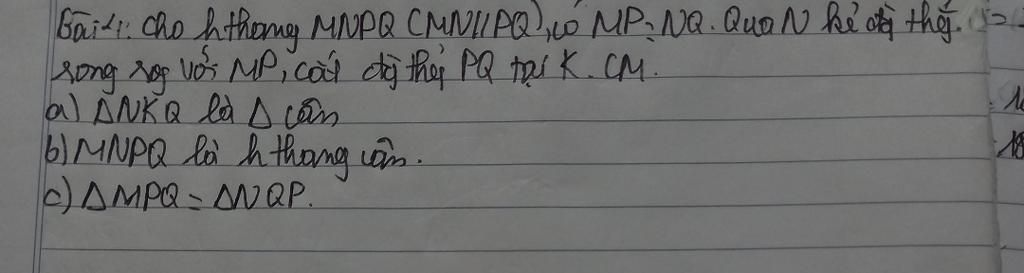 Bài 4: Cho h thang MNPQ (MN//PQ), có MP = NQ. Qua N kẻ đg thg.
song sog với MP, cắt đg thg PQ tại K. CM.
a) ΔNKQ là Δ cân
b) MNPQ là h thang cân.
c) ΔMPQ = ΔNQP.